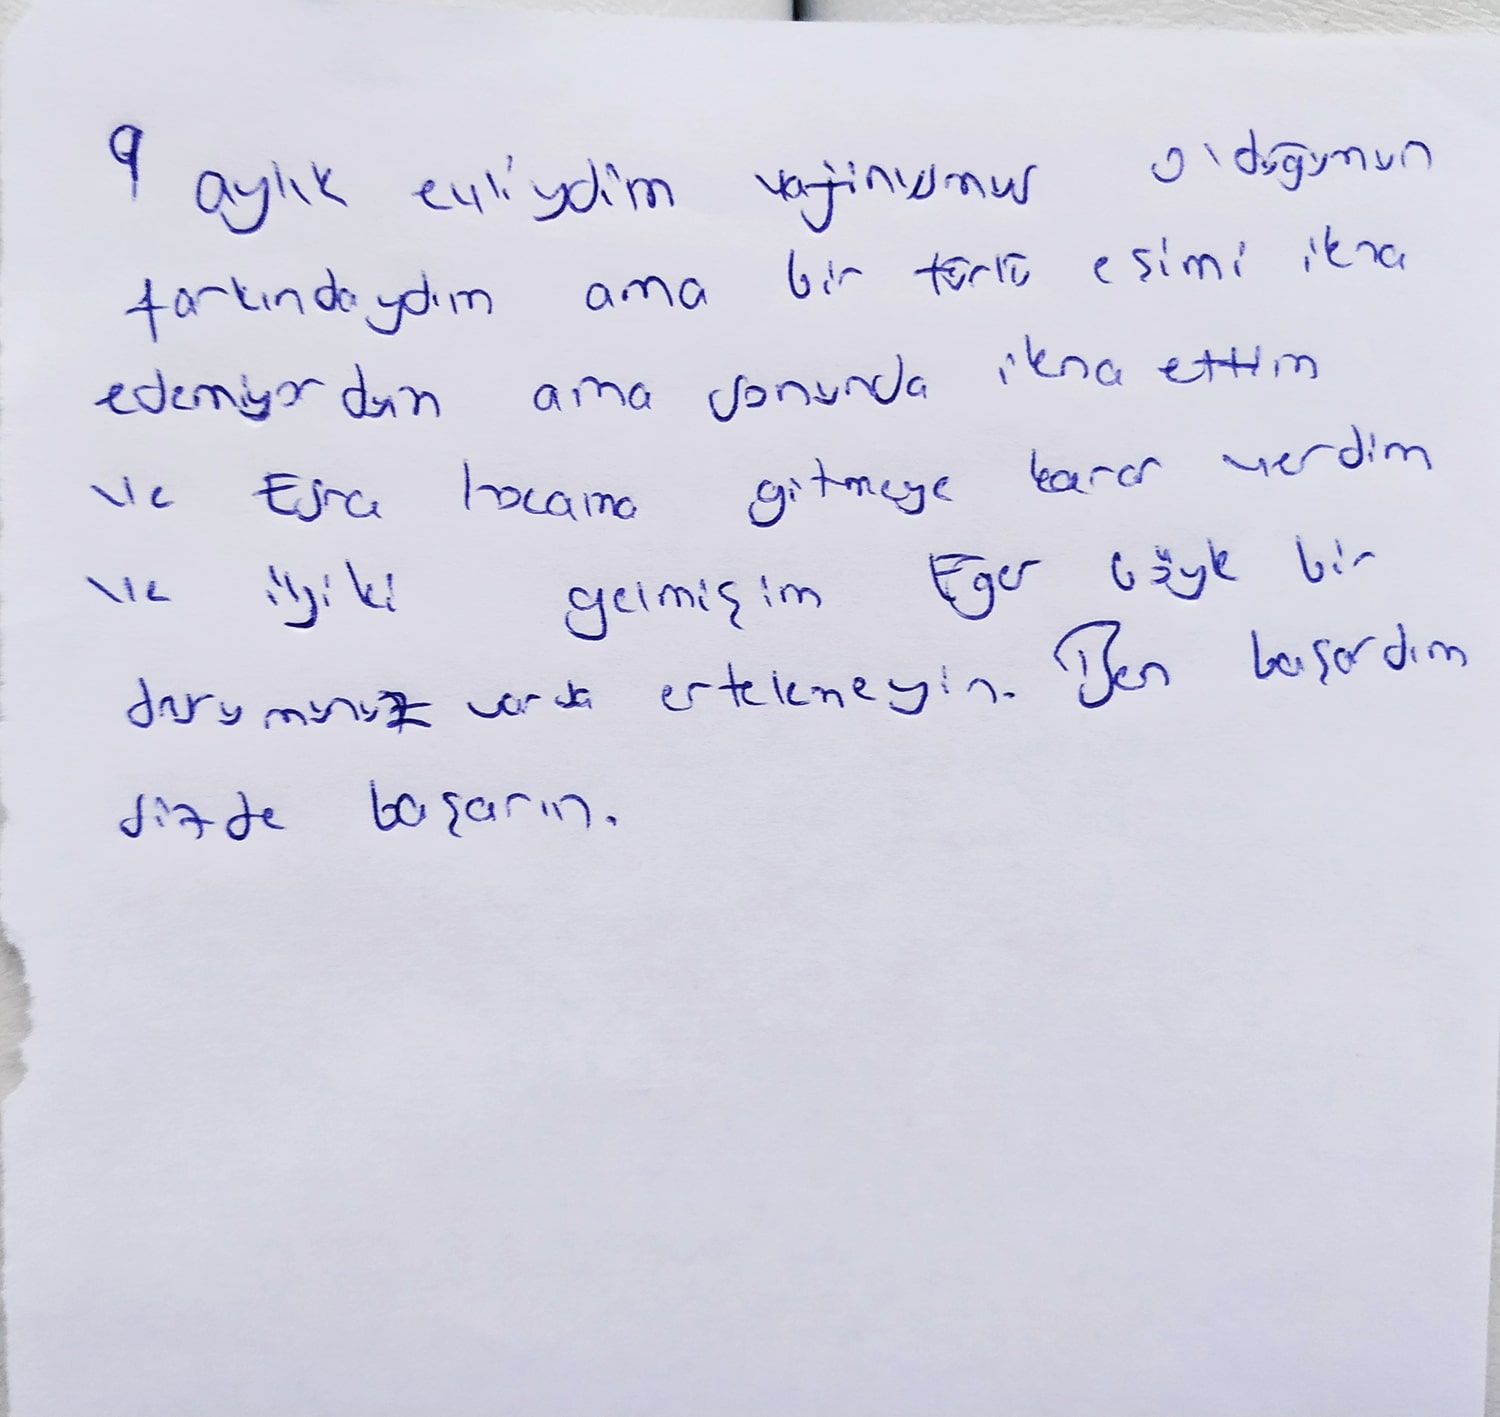 9 aylık evliydim vajinusmus olduğumun
farkındaydım ama bir türlü eşimi ikna
edemiyordum ama sonunda ikna ettim
ve Esra hocama gitmeye karar verdim
ve iyiki gelmişim Eğer böyle bir
durumunuz varsa ertelemeyin. Ben başardım
sizde başarın.